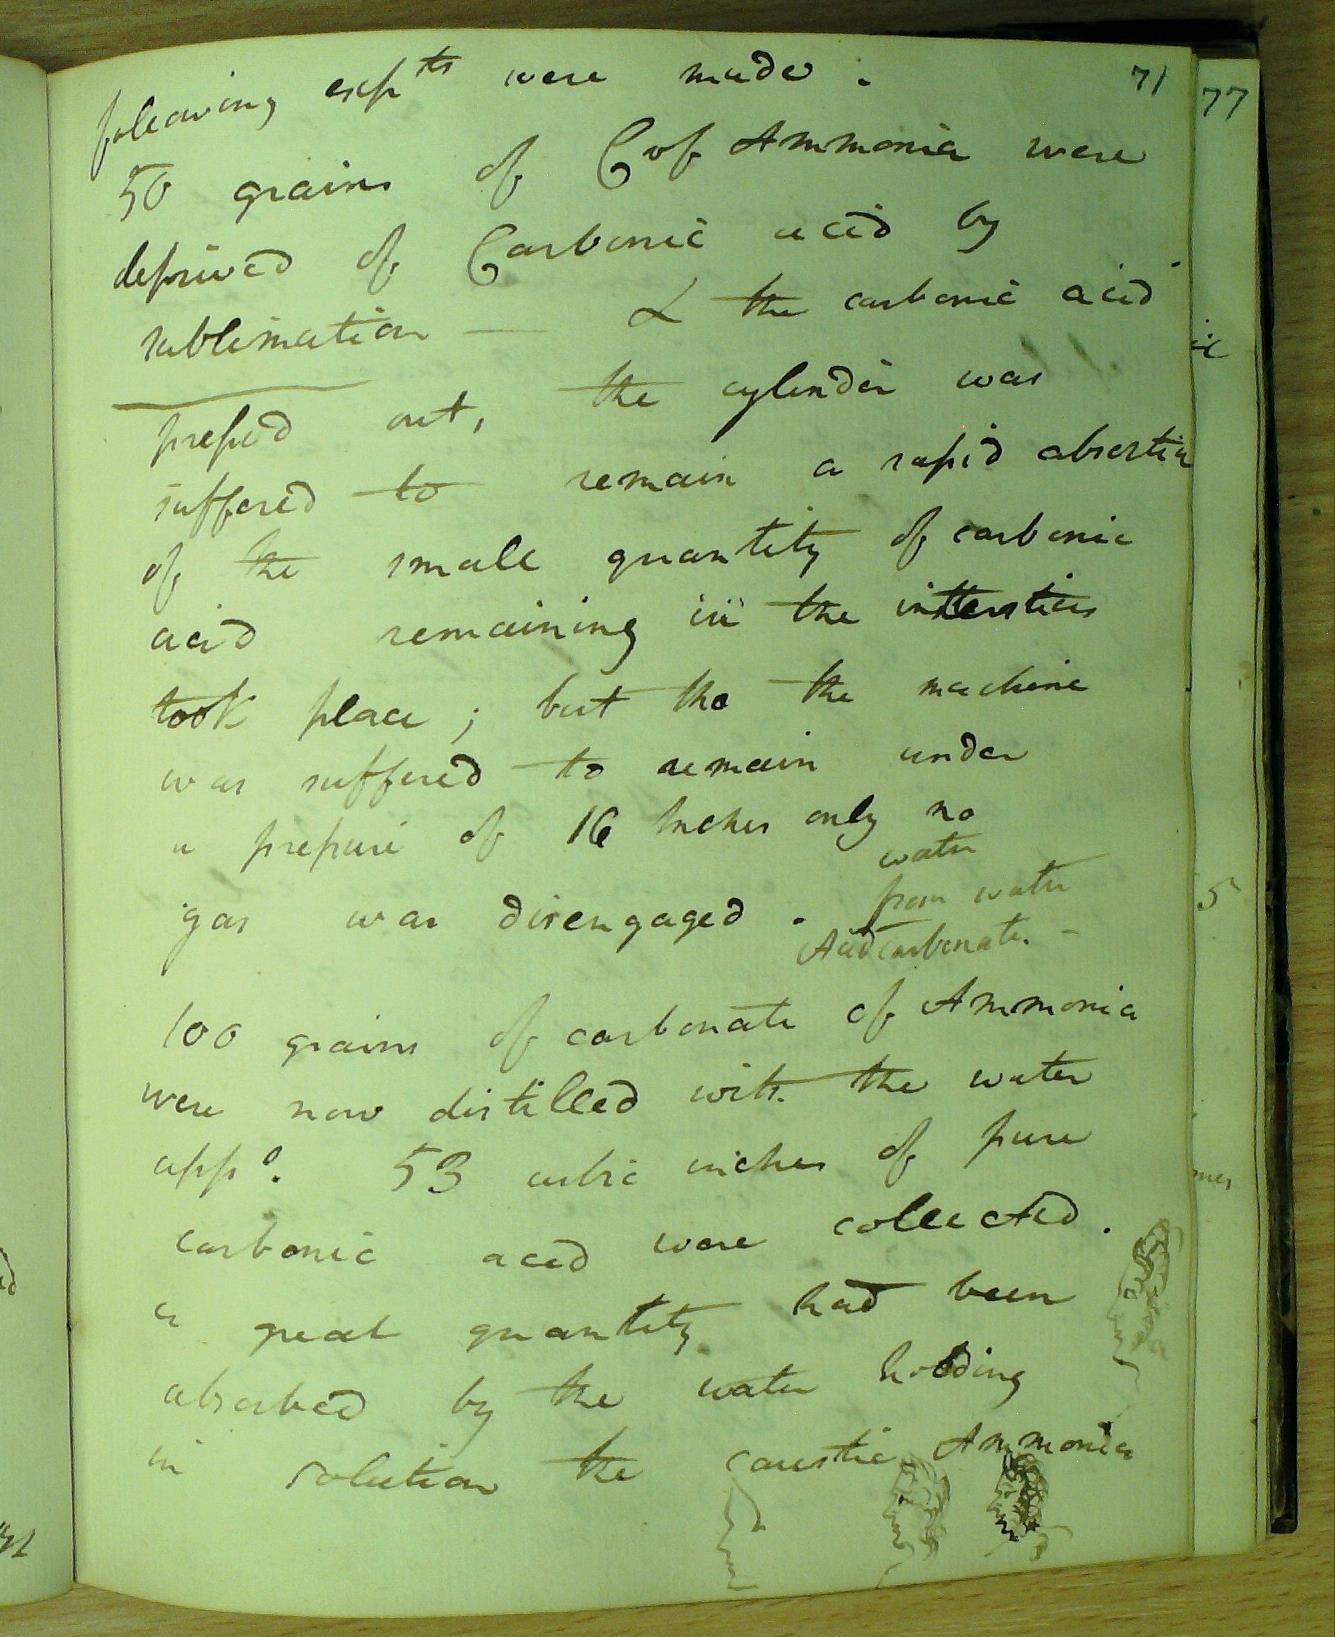 following expts were made. 71
50 grains of C of Ammonia were
deprived of Carbonic acid by
sublimation — & the carbonic acid
pressed out, the cylinder was
suffered to remain a rapid absortin
of the small quantity of carbonic
acid remaining in the interstices
took place; but tho the machine
was suffered to remain under
a pressure of 16 Inches only no
gas was disengaged.
water
from water
Acid carbonate. -
100 grains of carbonate of Ammonia
were now distilled with the water
appo. 53 cubic inches of pure
carbonic acid were collected.
a great quantity had been
absorbed by the water holding
in solution the caustic Ammonia
77
5